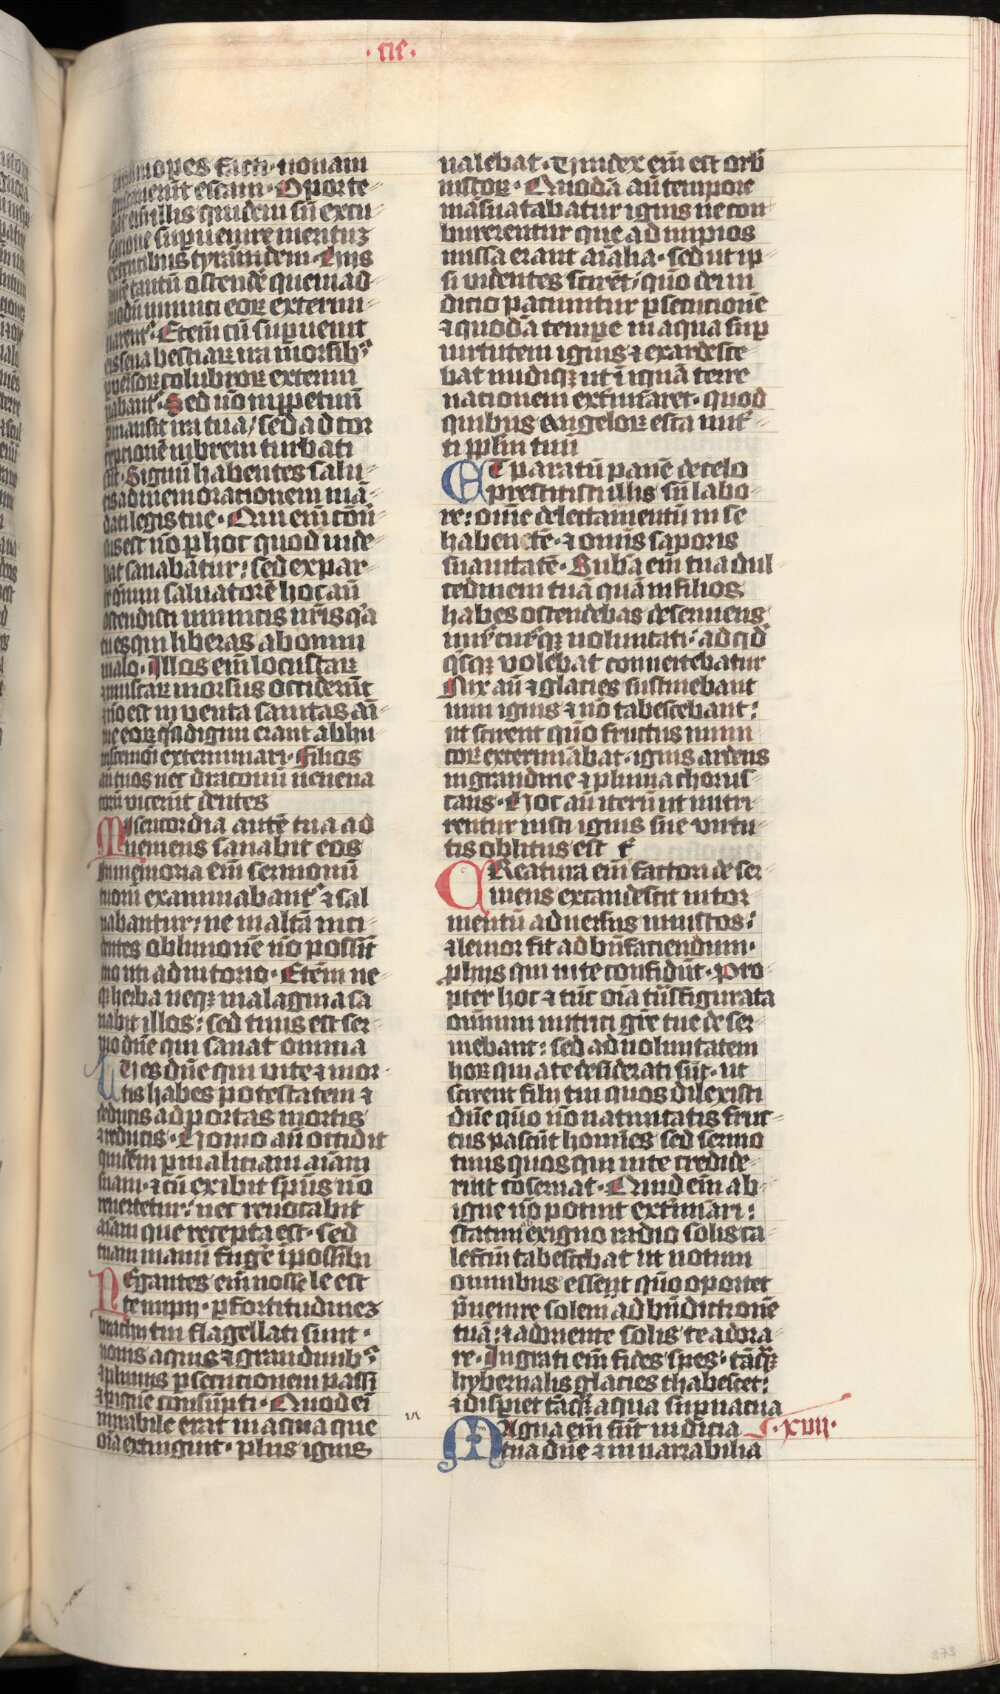 ·cie·
inopes facti· nouam
gustauerūt escam· Oporte
bat em̄ illis quidem sn̄ excu
satione superuenire interituz
exercentibus tyrannidem· hiis
aūt tantū ostendē quemad
modū inimici eoꝝ extermi
narent᷑· Etem̄ cū superuenit
eis seua bestiaꝝ ira morsib᷒
puersoꝝ colubroꝝ extermi
nabant᷑· Sed nō inꝑpetuū
pmansit ira tua/ sed ad cor
reptionē in breui turbati
sūt· Signū habentes salu
tis ad memorationem mā
dati legis tue· Qui em̄ cōu̅
sus est nō ꝑ hoc quod uide
bat sanabatur: sed ex par
te omniū saluatorē hoc aū
ostendisti inimicis nr̄is q᷑a
tu es qui liberas ab omni
malo· Illos em̄ locustaꝝ
⁊ muscaꝝ morsus occiderūt
⁊ nō est inuenta sanitas ai
me eoꝝ q᷑a digni erant ab hu
iuscemōi exterminari· Filios
aū tuos nec draconū uenena
torū vicerūt dentes
Misericordia autē tua ad
ueniens sanabit eos
In memoria em̄ sermonū
tuorū examinabant᷑ ⁊ sal
uabantur: ne in altā inci
dentes obliuionē nō possūt
tuo uti adiutorio· Etem̄ ne
qꝫ herba neqꝫ malagma sa
nabit illos: sed tuus est ser
mo dūe qui sanat omnia
Tu es dūe qui vite ⁊ mor
tis habes potestatem ⁊
deducis ad portas mortis
⁊ reducis· Homo aū occidit
quidem ꝑ maliciam aiam
suam· ⁊ cū exibit spūs nō
reuertetur: nec reuocabit
aiam que recepta est· sed
tuam manū fugē īpossibi
Negantes em̄ nosse le est
te impij· ꝑ fortitudinez
brachij tui flagellati sunt·
nouis aquis ⁊ grandinib᷒
⁊ pluuiis psecutionem passi
⁊ ꝑ ignē consūpti· Quod ei
mirabile erat in aqua que
oīa extinguit· plus ignis
ualebat· Vindex em̄ est orb̄
iustoꝝ· Quodā aū tempore
māsuetabatur ignis ne com
burerentur que ad impios
missa erant aīalia· sed ut ip
si uidentes scirēt/ quō dei iu
dicio patiuntur psecutionē
⁊ quodā tempore in aqua sup
uirtutem ignis ⁊ exardesce
bat undiqꝫ ut īiquā terre
nationem extīaret· quod
quibus angeloꝝ esca nut᷑
ti pplm̄ tuū
Et paratū panē de celo
prestitisti illis sn̄ labo
re: oīne delectamentū in se
habentē· ⁊ omnis saporis
suauitatē· Subā em̄ tua dul
cedinem tuā quā in filios
habes ostendebas deseruiens
uniꝰcuiꝰqꝫ uoluntati· ad qd̄
q᷑sqꝫ volebat conuertebatur
Nix aū ⁊ glacies sustinebant
uim ignis ⁊ nō tabescebant:
ut scirent quō fructus inimi
coꝝ extermīabat· ignis ardens
in grandine ⁊ pluuia chorus
cans· Hoc aū iterū ut nutri
rentur iusti ignis sue virtu
tis oblitus est
Creatura em̄ factori deser
uiens excandescit in tor
mentū aduersus iniustos:
⁊ leuior fit ad bn̄faciendum·
ꝓ hiis qui in te confidūt· Pro
pter hoc ⁊ tūc oīa trāsfigurata
omnium nutrici gr̄e tue deser
uiebant: sed ad uoluntatem
hoꝝ qui a te desiderati sūt· ut
scirent filij tui quos dilexisti
dūe quō nō natiuitatis fruc
tus pascūt homines sed sermo
tuus quos qui in te credide
rint cōseruat· Quid em̄ ab
igne nō potuit extimari:
statim ab exiguo radio solis ca
lefctm̄ tabescebat ut notum
omnibus essent quō oportet
p̄uenire solem ad bn̄dictionē
tuā: ⁊ ad mente solis te adora
re· Ingrati em̄ fides spes· tāqꝫ
hybernalis glacies thabescet:
⁊ dispiet tāqꝫ aqua supuacua
Magna em̄ sūt iudicia C·xvij·
tua dūe ⁊ in narrabilia
373